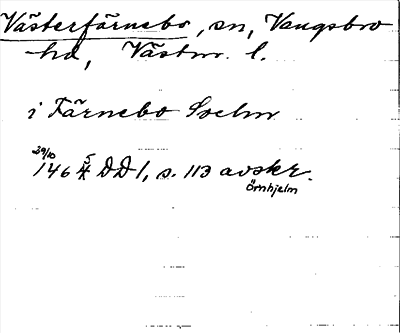 Västerfärnebo, sn, Vangsbro
hd, Västm. l.
i Färnebo Soelm
29/10 1465 DD1, s. 113 avskr.
Örnhjelm